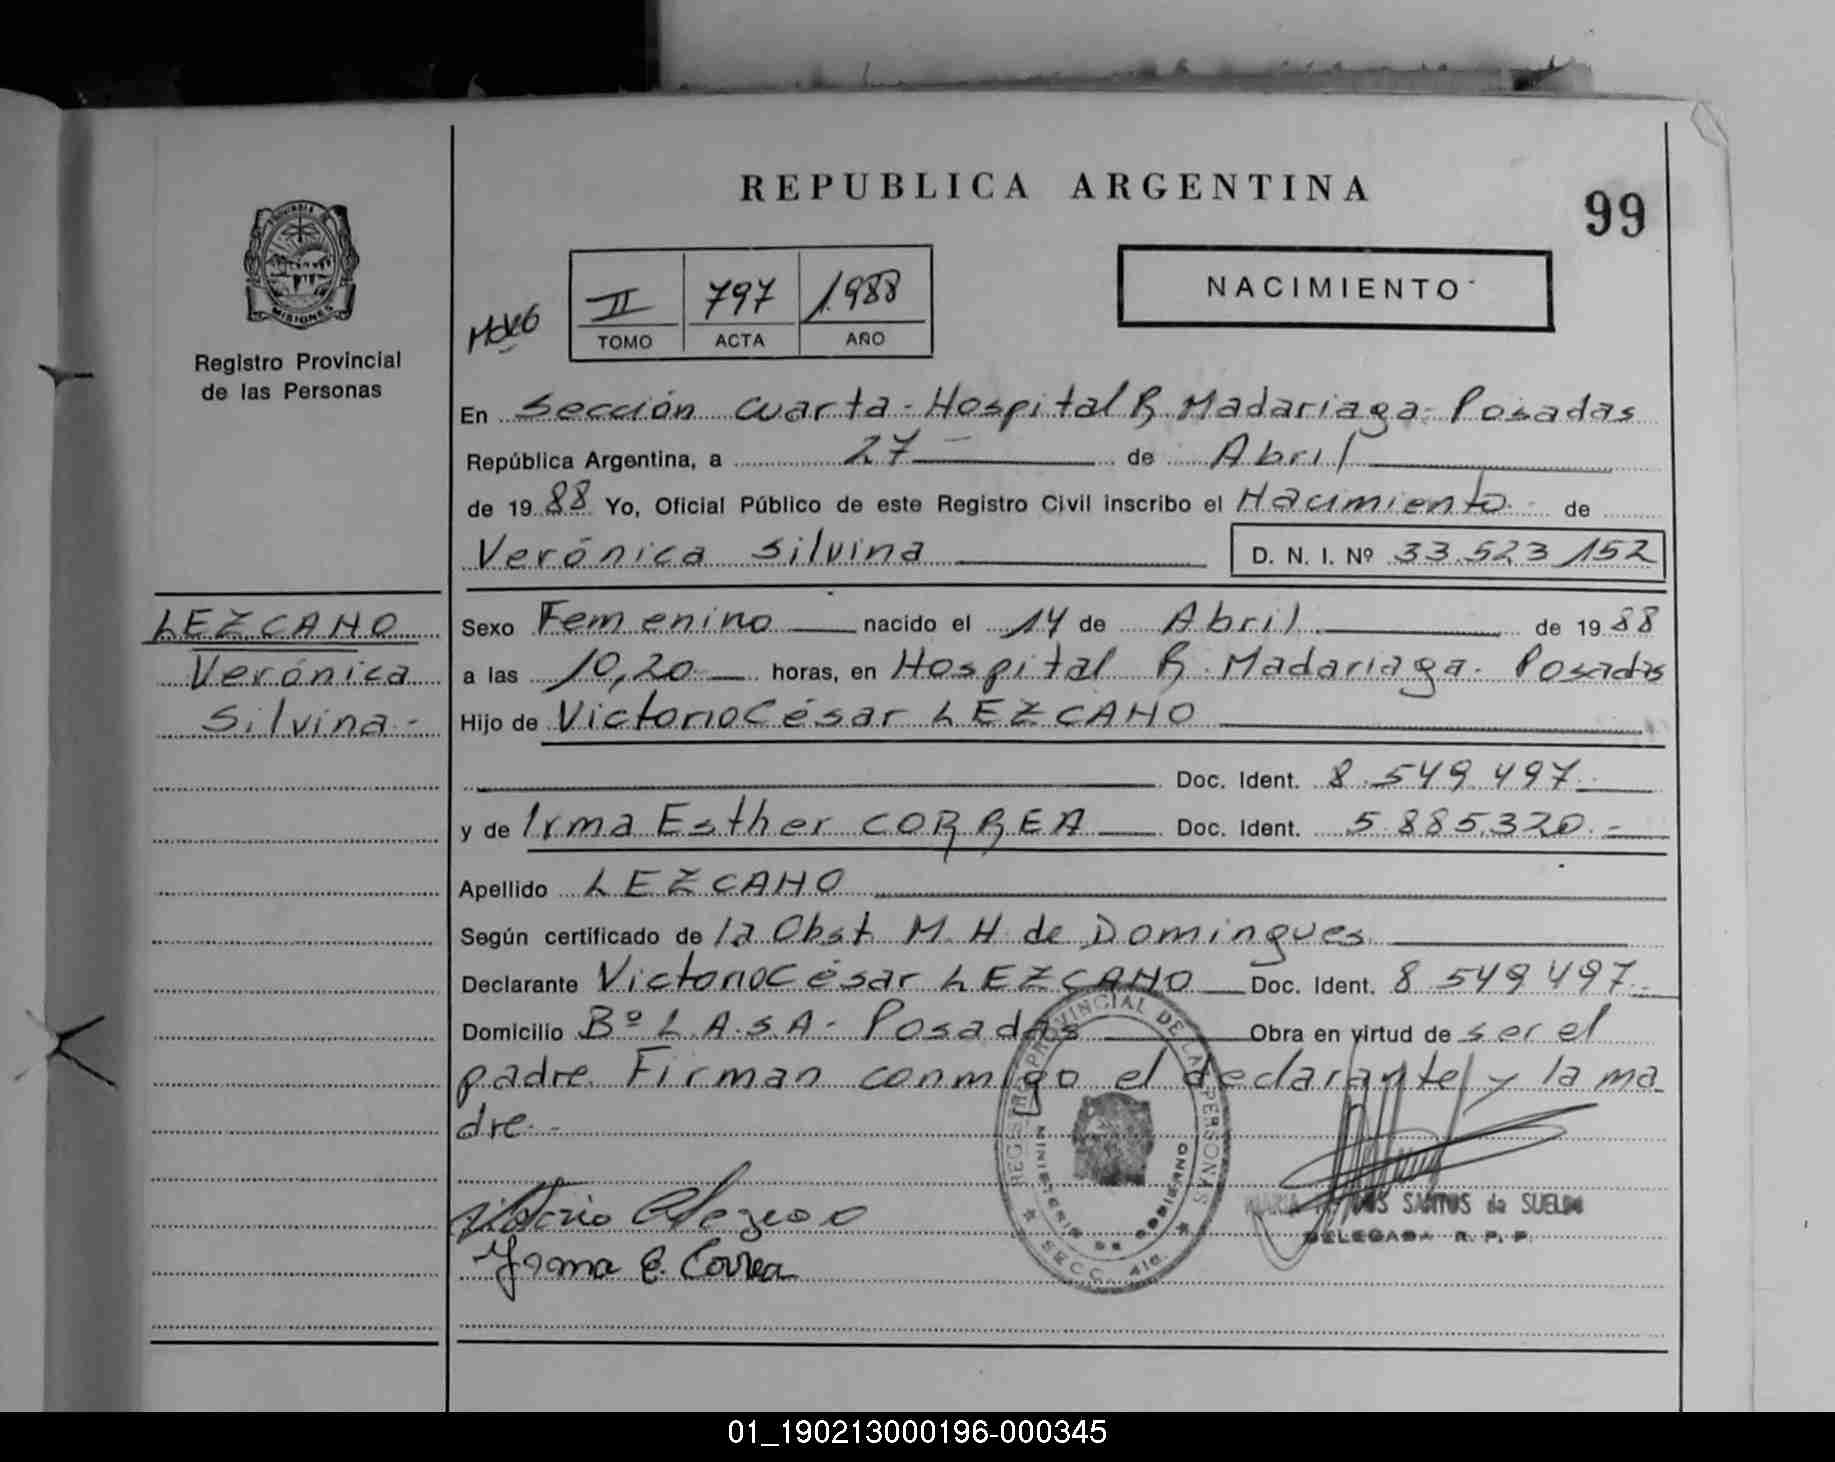 REPUBLICA ARGENTINA
99
PROVINCIA DE
MISIONES
Registro Provincial
de las Personas
II 797 1988
TOMO ACTA AÑO
NACIMIENTO
En Sección Cuarta - Hospital R. Madariaga - Posadas
República Argentina, a 27 de Abril
de 1988 Yo, Oficial Público de este Registro Civil inscribo el Nacimiento de
Verónica Silvina D. N. I. Nº 33.523.152
LEZCANO
Verónica
Silvina.-
Sexo Femenino nacido el 14 de Abril de 1988
a las 10,20 horas, en Hospital R. Madariaga - Posadas
Hijo de Victorio César LEZCANO
Doc. Ident. 8.549.497
y de Irma Esther CORREA Doc. Ident. 5.885.320.-
Apellido LEZCANO
Según certificado de la Obst. M. H. de Domingues
Declarante Victorio César LEZCANO Doc. Ident. 8.549.497
Domicilio Bº L.A.S.A - Posadas Obra en virtud de ser el
padre. Firman conmigo el declarante y la ma
dre.-
Irma E. Correa
REGISTRO PROVINCIAL DE LAS PERSONAS
MINISTERIO DE GOBIERNO
SECC. 4ta.
MARIA DOS SANTOS de SUELDO
DELEGADA R. P. P.
01_190213000196-000345